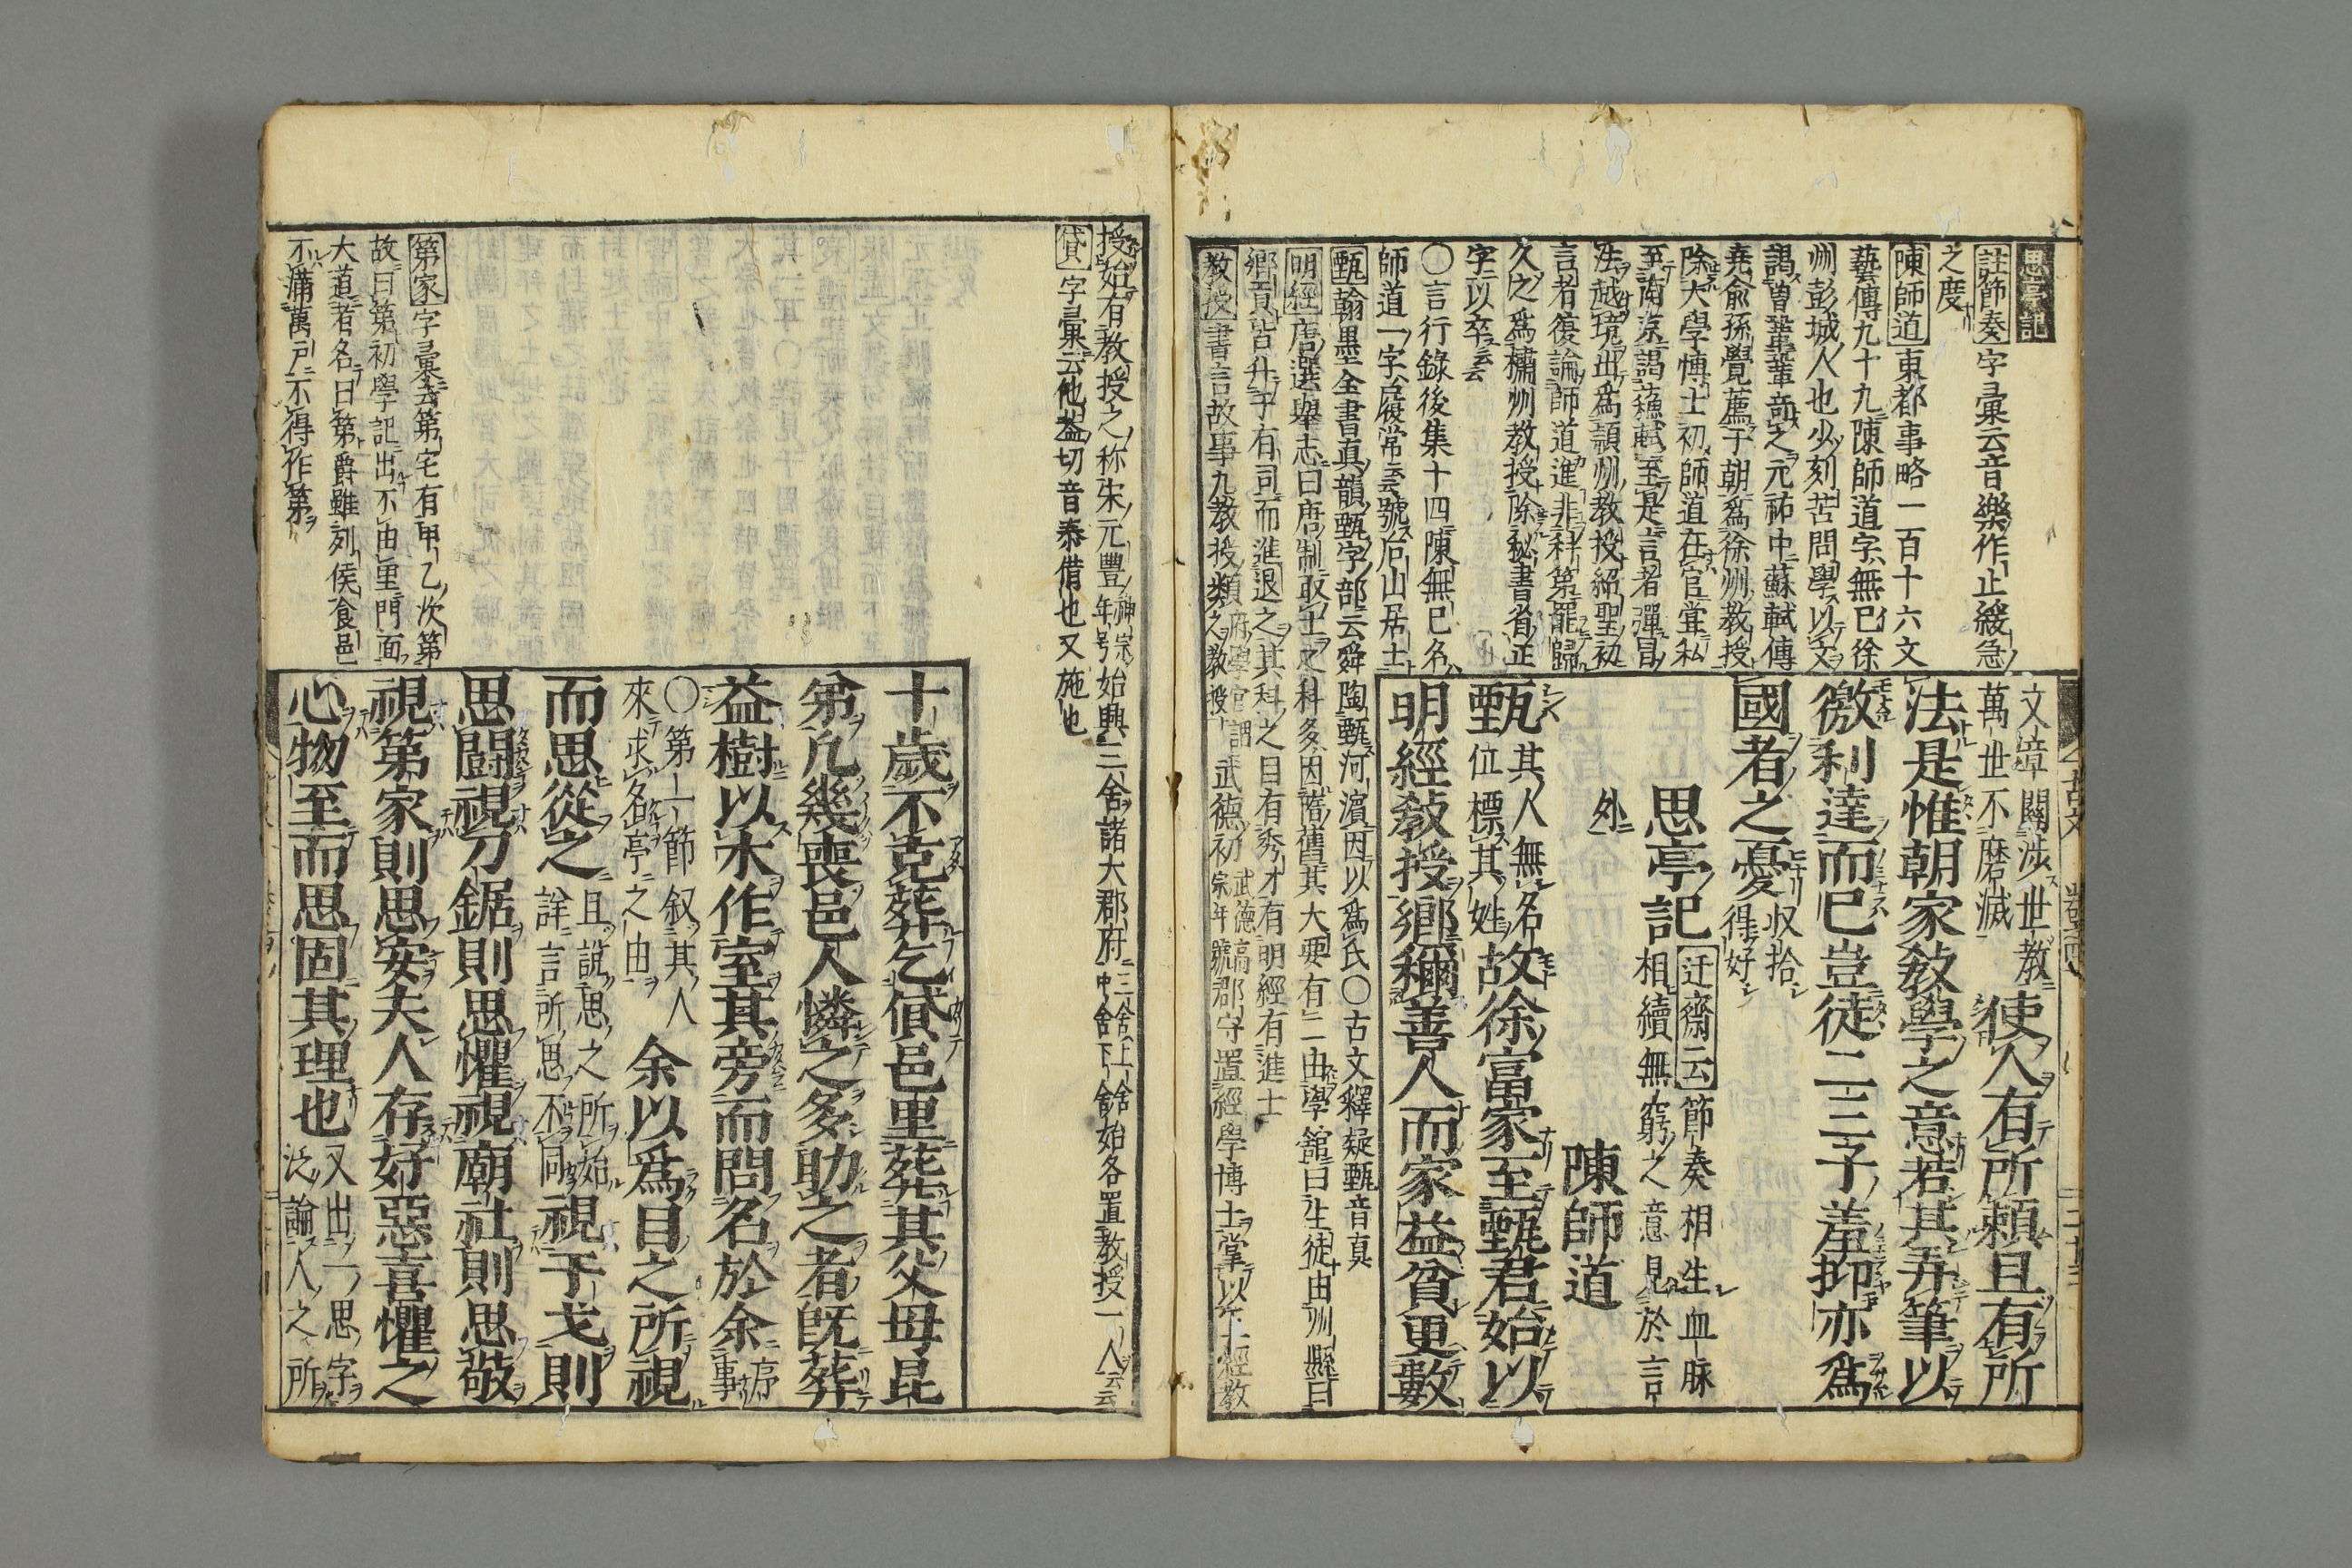 思亭記
註節奏字彙云音樂作止緩急
之度
陳師道東都事略一百十六文
藝傳九十九陳師道字無已徐
州彭城人也少刻苦問學以文
謁曽鞏鞏奇之元祐中蘇軾傅
堯俞孫覺薦于朝為徐州教授
除大學博士初師道在官嘗私
至南京謁蘇軾至是言者彈冒
法越境出為頴州教授紹聖初
言者復論師道進非科第罷歸
久之為棣州教授除秘書省正
字以卒云云
〇言行錄後集十四陳無已名
師道一字履常云云號后山居士
甄翰墨全書真韻甄字部云舜陶甄河濵因以為氏〇古文釋疑甄音真
明經唐選舉志曰唐制取士之科多因隋舊其大要有二由學舘曰生徒由州縣曰
鄉貢皆升于有司而進退之其科之目有秀才有明經有進士
教授書言故事九教授類府學官謂之教授武德初武德高宗年號郡守置經學博士掌以五經教
文章關涉世教
萬世不磨滅使人有所頼且有所
法是惟朝家敎學之意若其弄筆以
徼利達而已豈徒二三子羞抑亦爲
國者之憂収拾得好
思亭記迂齋云節奏相生血脉
相續無窮之意見於言
外
陳師道
甄其人無名故徐富家至甄君始以
位標其姓
明經敎授鄉稱善人而家益貧更數
授始有教授之称宋元豐神宗年号始興三舍諸大郡府三舍上舍中舍下舍始各置教授一人云云
貸字彙云他葢切音泰借也又施也
第家字彙云第宅有甲乙次第
故曰第初學記出不由里門面
大道者名曰第爵雖列侯食邑
不滿萬戸不得作第
十歲不克葬乞貸邑里葬其父母昆
弟凢幾喪邑人憐之多助之者旣葬
益樹以木作室其旁而問名於余序事
〇第一節叙其人
來求名亭之由余以爲目之所視
而思從之且說思之所始
詳言所思不同視干戈則
思鬪視刀鋸則思懼視廟社則思敬
視第家則思安夫人存好惡喜懼之
心物至而思固其理也又出一思字
泛論人之所